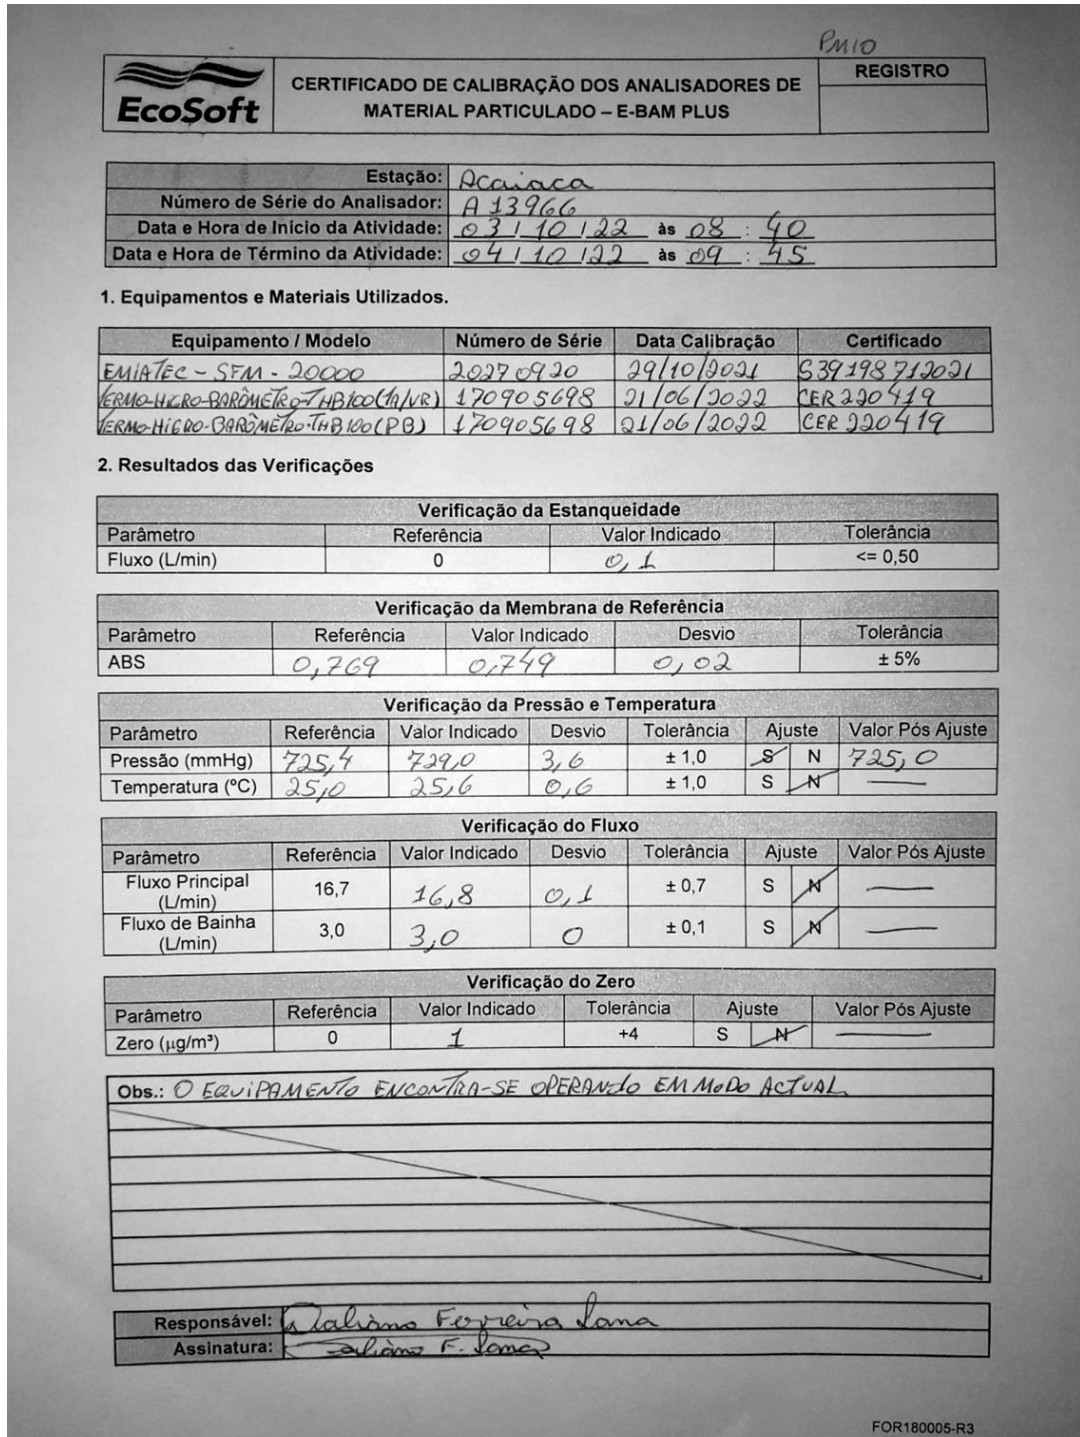 PM10
EcoSoft
CERTIFICADO DE CALIBRAÇÃO DOS ANALISADORES DE
MATERIAL PARTICULADO – E-BAM PLUS
REGISTRO
Estação: Acaiaca
Número de Série do Analisador: A 13966
Data e Hora de Início da Atividade: 03/10/22 às 08:40
Data e Hora de Término da Atividade: 04/10/22 às 09:45
1. Equipamentos e Materiais Utilizados.
Equipamento / Modelo Número de Série Data Calibração Certificado
EMIATEC - SFM - 20000 20270920 29/10/2021 S39198712021
TERMO-HIGRO-BARÔMETRO-THB100(TA/VR) 170905698 21/06/2022 CER 220419
TERMO-HIGRO-BARÔMETRO-THB100(PB) 170905698 21/06/2022 CER 220419
2. Resultados das Verificações
Verificação da Estanqueidade
Parâmetro Referência Valor Indicado Tolerância
Fluxo (L/min) 0 0,1 <= 0,50
Verificação da Membrana de Referência
Parâmetro Referência Valor Indicado Desvio Tolerância
ABS 0,769 0,749 0,02 ± 5%
Verificação da Pressão e Temperatura
Parâmetro Referência Valor Indicado Desvio Tolerância Ajuste Valor Pós Ajuste
Pressão (mmHg) 725,4 729,0 3,6 ± 1,0 S N 725,0
Temperatura (ºC) 25,0 25,6 0,6 ± 1,0 S N —
Verificação do Fluxo
Parâmetro Referência Valor Indicado Desvio Tolerância Ajuste Valor Pós Ajuste
Fluxo Principal (L/min) 16,7 16,8 0,1 ± 0,7 S N —
Fluxo de Bainha (L/min) 3,0 3,0 0 ± 0,1 S N —
Verificação do Zero
Parâmetro Referência Valor Indicado Tolerância Ajuste Valor Pós Ajuste
Zero (µg/m³) 0 1 +4 S N —
Obs.: O EQUIPAMENTO ENCONTRA-SE OPERANDO EM MODO ACTUAL
Responsável: Ferreira Lana
Assinatura: F. Lana
FOR180005-R3